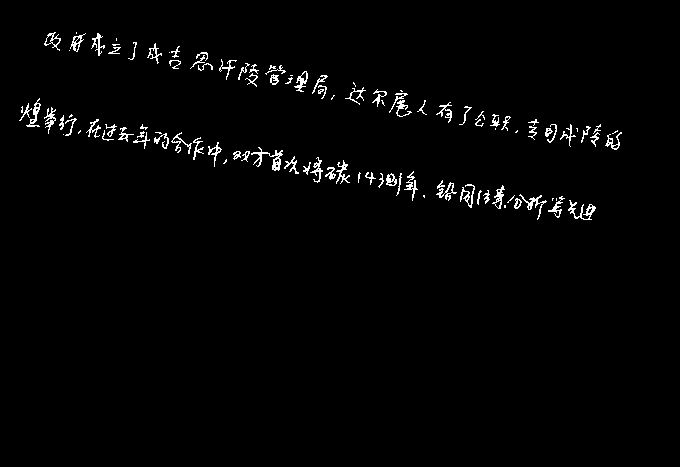 政府成立了成吉思汗陵管理局，达尔扈人有了公职，专司成陵的
煌举行，在过去年的合作中，双方首次将碳14测年、铅同位素分析等先进